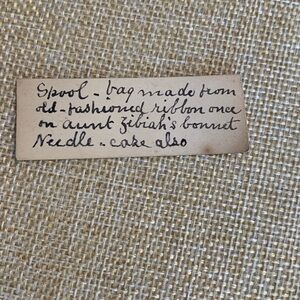 Spool - bag made from
old-fashioned ribbon once
on aunt Zibiah's bonnet
Needle - case also